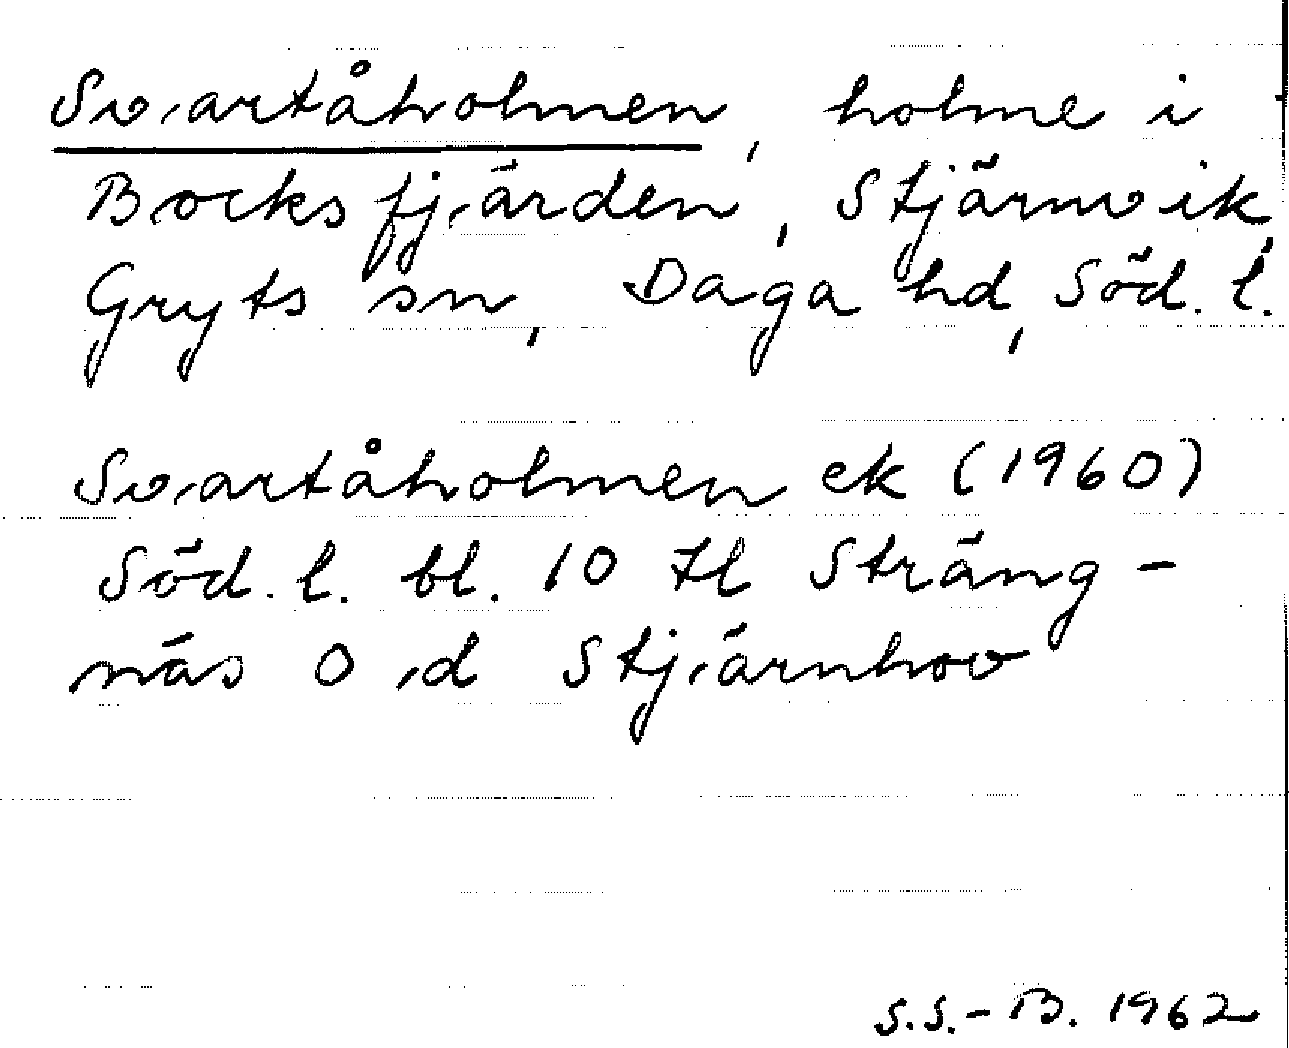 Svartåholmen, holme i
Bocksfjärden, Stjärnvik,
Gryts sn, Daga hd, Söd. l.
Svartåholmen ek (1960)
Söd. l. bl. 10 tl Sträng-
näs O d Stjärnhov
S.S.-B. 1962